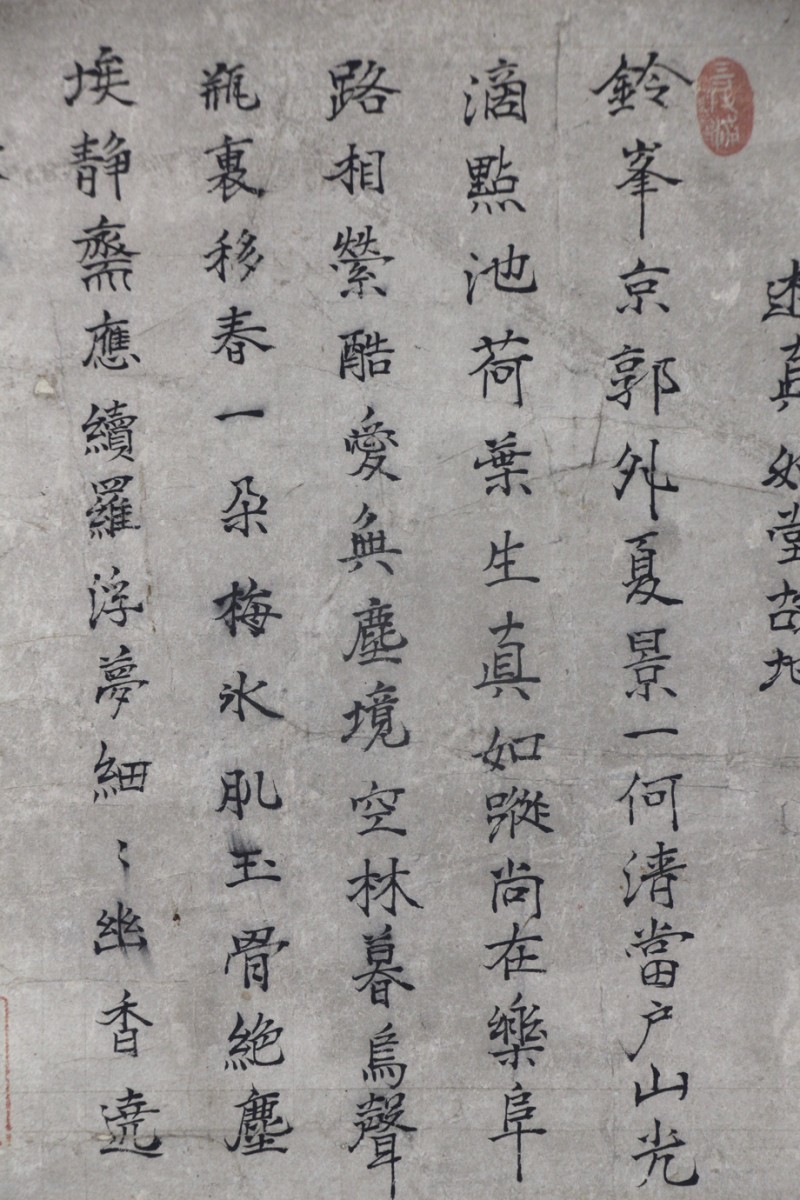 真如堂故地
鈴峯京郭外夏景一何清當户山光
滴點池荷葉生真如蹤尚在樂阜
路相縈酷愛無塵境空林暮烏聲
瓶裏移春一朵梅氷肌玉骨絶塵
埃静齋應續羅浮夢細〻幽香遶